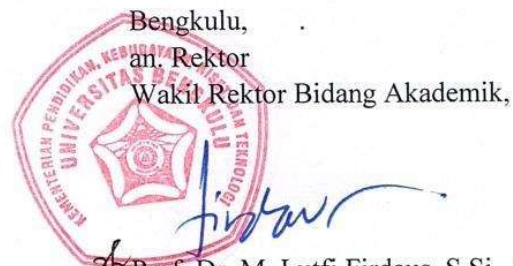 Bengkulu, .
an. Rektor
Wakil Rektor Bidang Akademik,
KEMENTERIAN PENDIDIKAN, KEBUDAYAAN, RISET DAN TEKNOLOGI
UNIVERSITAS BENGKULU
firdaus
Prof. Dr. M. Lutfi Firdaus, S.Si.